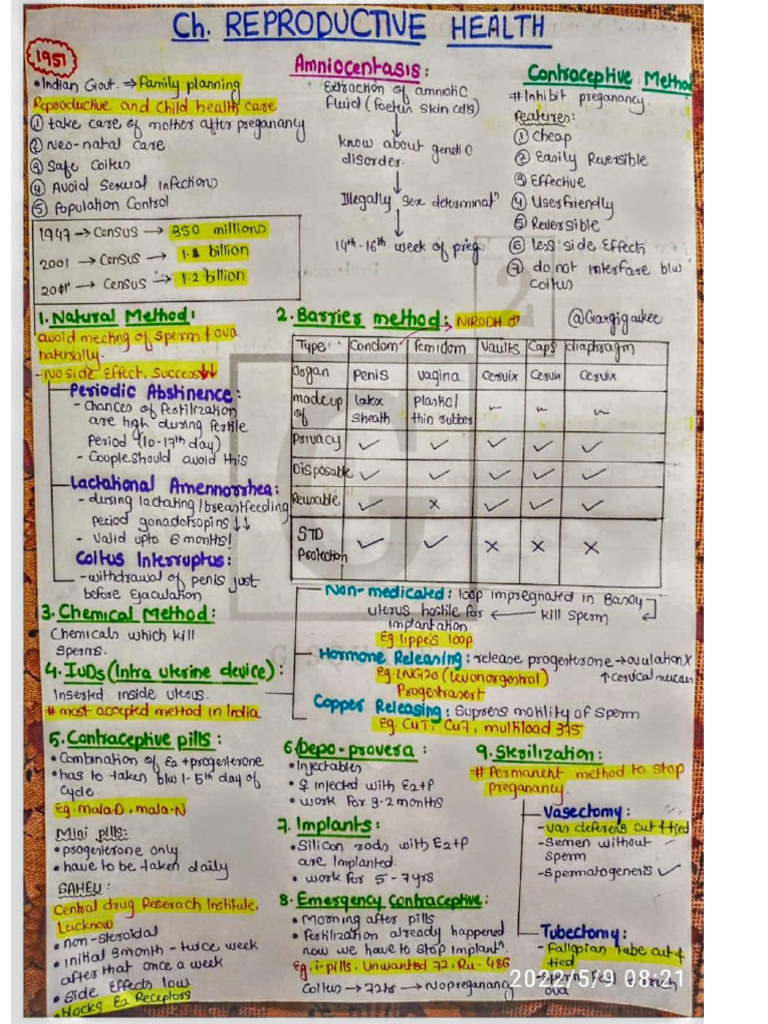 Ch. REPRODUCTIVE HEALTH
1951
• Indian Govt. ⇒ Family planning
Reproductive and Child health care
① take care of mother after preganancy
② Neo-natal care
③ Safe Coitus
④ Avoid Sexual Infections
⑤ Population Control
1947 → Census → 350 millions
2001 → Census → 1.1 billion
2011 → Census → 1.2 billion
Amniocentasis:
Extraction of amniotic
fluid (foetus skin cells)
know about genetic
disorder.
Illegally sex determinatⁿ
14th-16th week of preg.
Contraceptive Method
# Inhibit preganancy.
Features:
① Cheap
② Easily Reversible
③ Effective
④ Userfriendly
⑤ Reversible
⑥ less side effects
⑦ do not interfare b/w
coitus
1. Natural Method:
avoid meeting of sperm & ova
naturally.
- No side Effect, Success↓↓
Periodic Abstinence:
- Chances of fertilization
are high during fertile
Period (10-17th day)
- Couple should avoid this
Lactational Amennorrhea:
- during lactating/breastfeeding
period gonadotropins ↓↓
- Valid upto 6 months!
Coitus Interruptus:
- withdrawal of penis just
before Ejaculation
2. Barrier method: NIRODH ♂
@Gargigaukee
Type: Condom Femidom Vaults Caps diaphragm
Organ Penis Vagina Cervix Cervix Cervix
made up of latex sheath Plastic/ thin rubber ~ ~ ~
Privacy ✓ ✓ ✓ ✓ ✓
Disposable ✓ ✓ ✓ ✓ ✓
Reusable ✓ × ✓ ✓ ✓
STD Protection ✓ ✓ × × ×
3. Chemical Method:
Chemicals which kill
sperms.
4. IUDs (Intra uterine device):
Inserted inside uterus.
# most accepted method in India
Non-medicated: loop impregnated in BaSO4
uterus hostile for ← kill sperm
implantation
Eg lippe's loop
Hormone Releasing: release progesterone → ovulation X
↑ cervical mucus
Eg. LNG20 (Levonorgestrol)
Progestasert
Copper Releasing: Supress motility of sperm
Eg. CuT, Cu7, multiload 375
5. Contraceptive pills:
• Combination of E2 + progesterone
• has to taken b/w 1-5th day of
cycle.
Eg. mala-D, mala-N
Mini pills:
• progesterone only
• have to be taken daily
SAHELI:
Central drug Reserach Institute,
Lucknow
• non-steroidal
• initial 3month - twice week
after that once a week
• Side Effects low.
• blocks E2 Receptors
6. Depo-provera:
• Injectables
• ♀ injected with E2+P
• work for 3-2 months
7. Implants:
• Silicon rods with E2+P
are Implanted.
• work for 5-7 yrs
8. Emergency Contraceptive:
• Morning after pills
• Fertilization already happened
now we have to stop implantⁿ.
Eg. i-pills, Unwanted 72, Ru-486
Coitus → 72hs → No preganancy
9. Sterilization:
# Permanent method to stop
preganancy.
Vasectomy:
- Vas deferens cut & tied
- Semen without
sperm
- Spermatogenesis ✓
Tubectomy:
- Fallopian tube cut &
tied
ova
2022/5/9 08:21